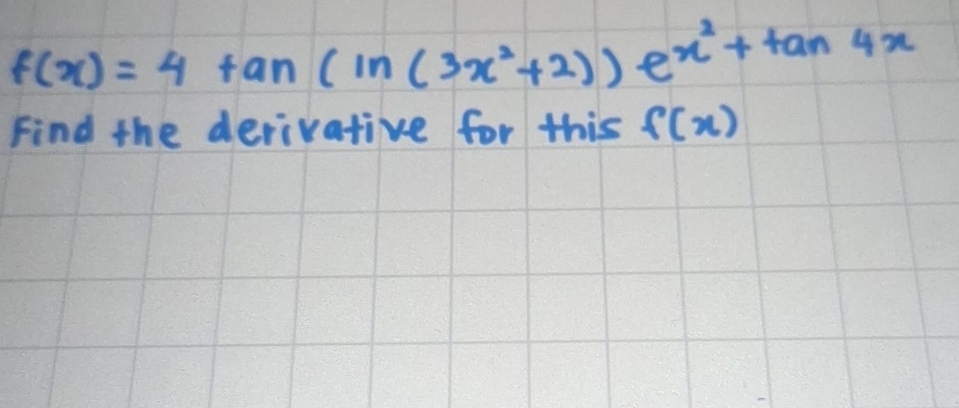 f(x) = 4 tan (ln (3x²+2)) eˣ² + tan 4x
Find the derivative for this f(x)